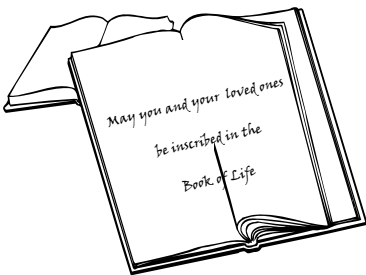 May you and your loved ones
be inscribed in the
Book of Life